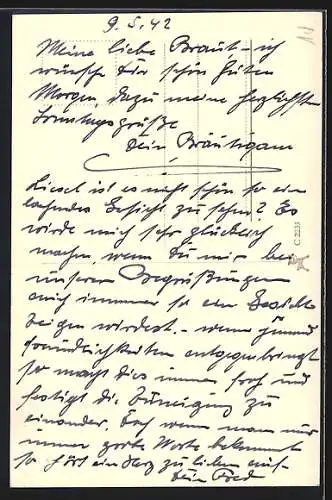 9.5.42
Meine liebe Braut - ich
wünsche Dir schön guten
Morgen, dazu meine herzlichsten
Sonntagsgrüße
Dein Bräutigam
Liesel ist es nicht schön so ein
lachendes Gesicht zu sehen? Es
würde mich sehr glücklich
machen, wenn Du mir bei
unseren Begrüßungen
auch immer so ein Gesicht
zeigen würdest. - wenn jemand
Freundlichkeiten entgegenbringt
so macht dies immer froh und
festigt die Zuneigung zu
einander. Doch wenn man nur
immer grobe Worte bekommt
so hört ein Herz zu lieben auf.
Dein Fred
C 2235